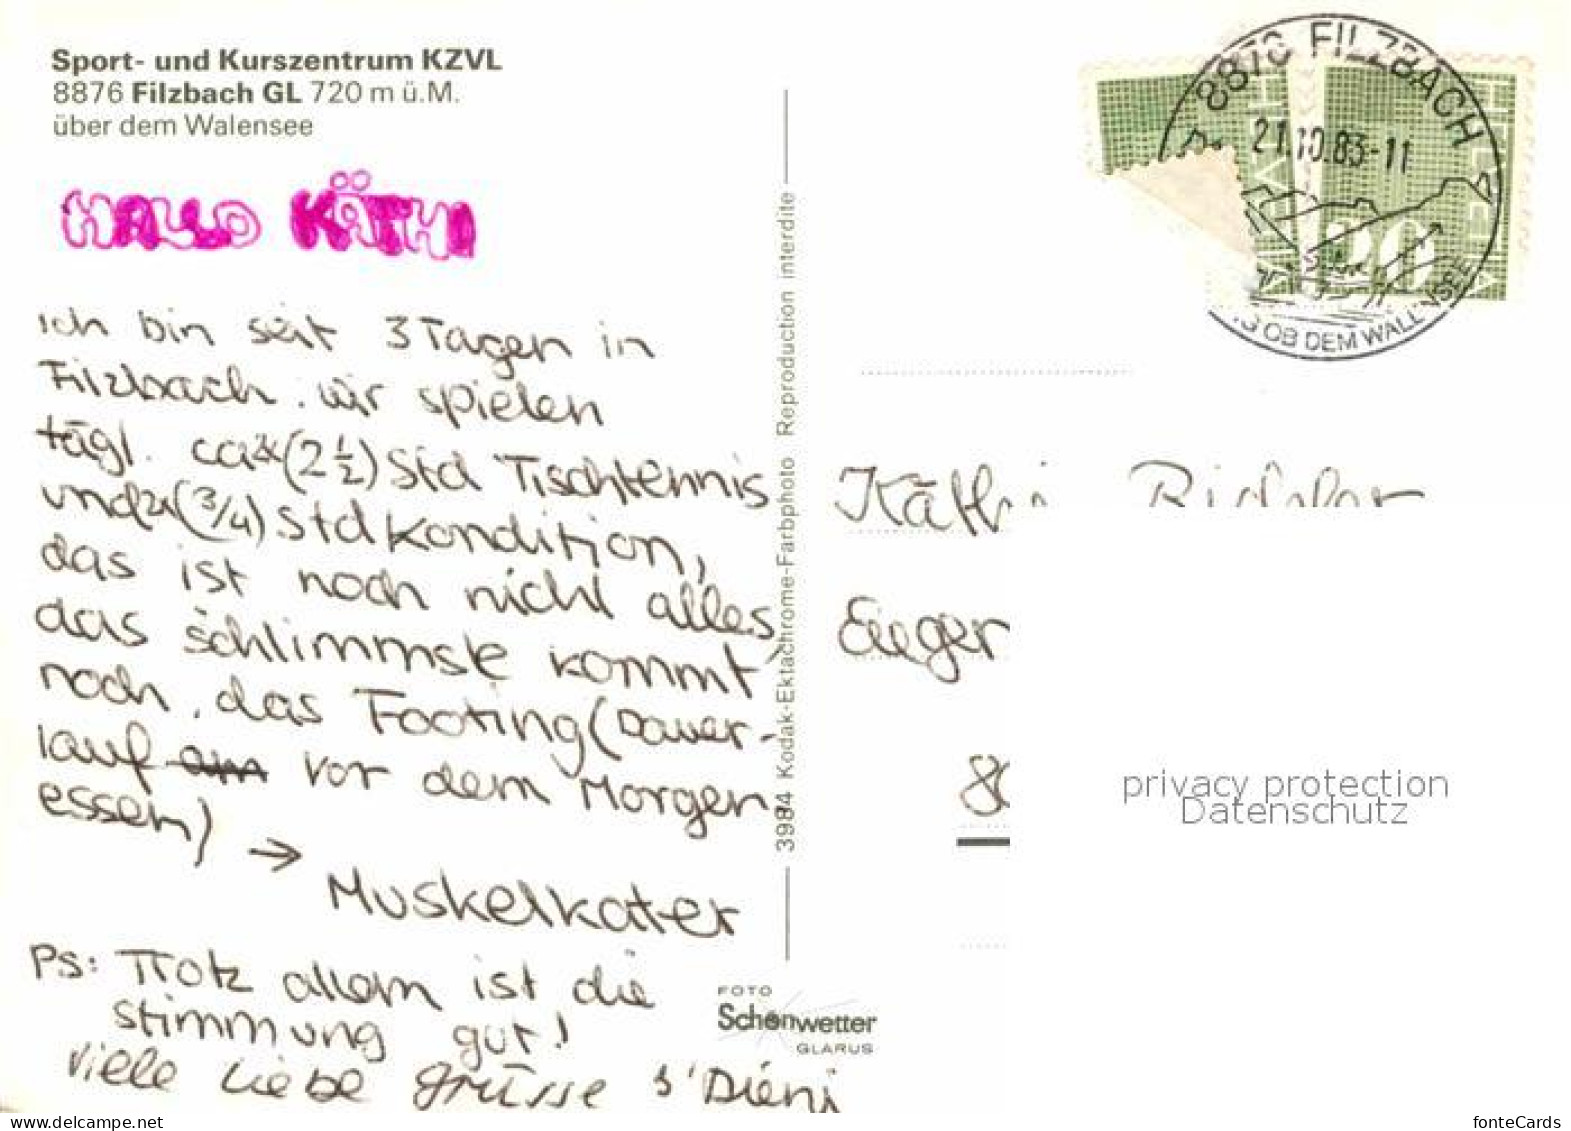 Sport- und Kurszentrum KZVL
8876 Filzbach GL 720 m ü.M.
über dem Walensee
HALLO KÄTHI
Ich bin seit 3 Tagen in
Filzbach. wir spielen
tägl. ca 2x (2 1/2) Std Tischtennis
und 2x (3/4) Std Kondition,
das ist noch nicht alles,
das schlimmste kommt
noch, das Footing (Dauer-
lauf am vor dem Morgen
essen)
→ Muskelkater
PS: Trotz allem ist die
stimmung gut!
Viele Liebe Grüsse s'Dieni
3984 Kodak-Ektachrome-Farbphoto Reproduction interdite
FOTO
Schönwetter
GLARUS
8876 FILZBACH
21.10.83-11
OB DEM WALENSEE
HELVETIA
HELVETIA
20
Käthi
80
privacy protection
Datenschutz
fonteCards